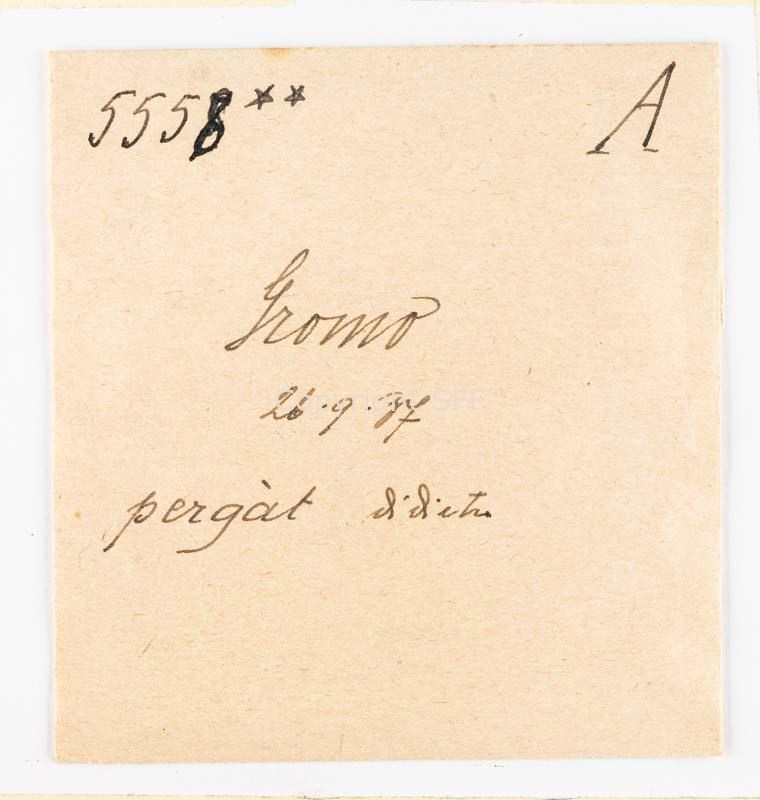 5558** A
Gromo
26.9.
pergàt di dietro